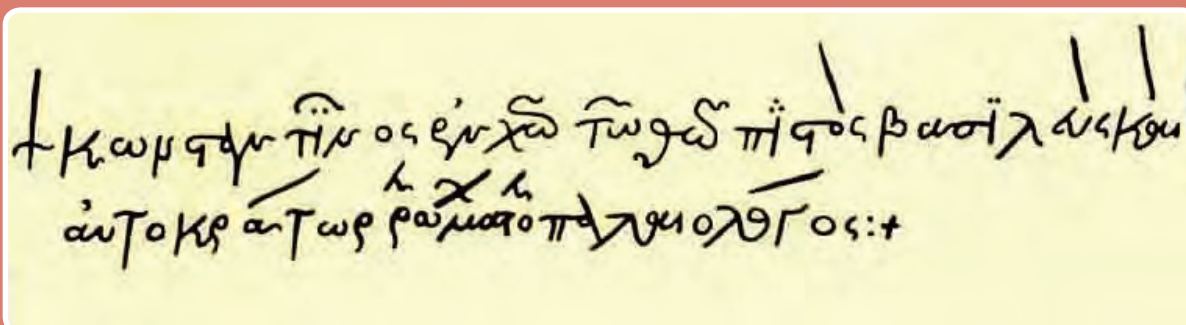 + κωνσταντῖνος ἐν χῶ τῶ θῶ πϊστὸς βασϊλεὺς καὶ
αὐτοκράτωρ ῥωμαίων ὁ παλαιολόγος:+